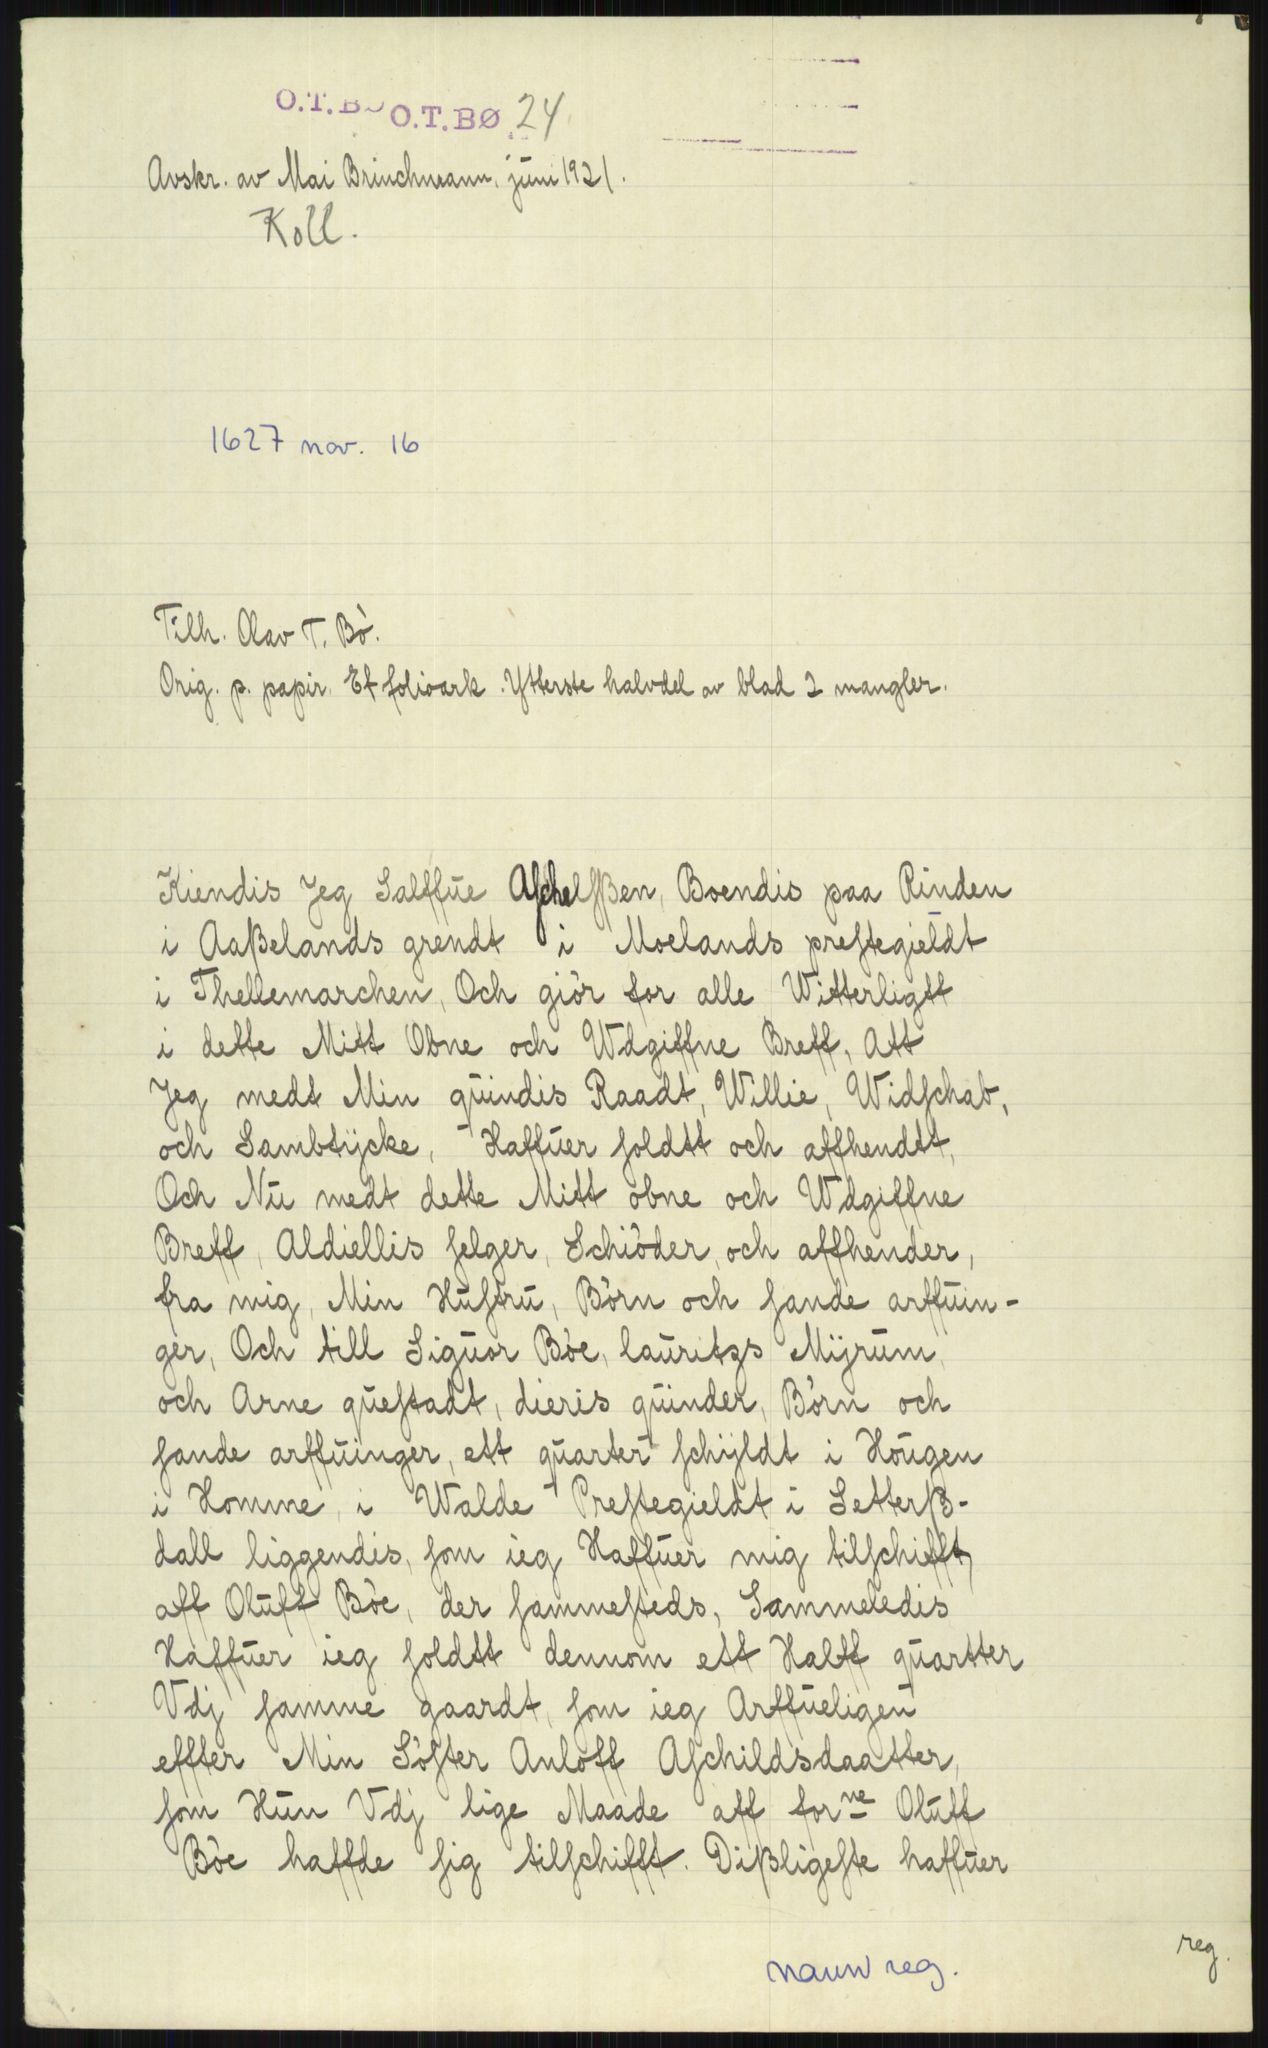 O.T.BØ O.T.BØ 24
Avskr. av Mai Brinchmann, juni 1921.
Koll.
1627 nov. 16
Tilh. Olav T. Bö.
Orig. p. papir. Et folioark. Ytterste halvdel av blad 2 mangler.
Kiendis Jeg Salffue Aſchelſßen, Boendis paa Rinden
i Aaßelands grendt i Moelands preſtegieldt
i Thellemarchen, Och giör for alle Witterligtt
i dette Mitt Obne och Wdgiffne Breff, Att
Jeg medt Min quindis Raadt, Willie, Widſchab,
och Sambtÿcke, Haffuer ſoldtt och affhendtt,
Och Nu medt dette Mitt obne och Wdgiffne
Breff, Aldiellis ſelger, Schiöder, och affhender,
fra mig, Min Huſtru, Börn och ſande arffuin-
ger, Och till Siguor Böe, lauritzs Mijrum,
och Arne queſtadt, dieris quinder, Börn och
ſande arffuinger, ett quarter ſchijldt i Hougen
i Homme, i Walde Preſtegieldt i Setterſß-
dall liggendis, ſom ieg Haffuer mig tilſchifft,
aff Oluff Böe, der ſammeſteds, Sammeledis
Haffuer ieg ſoldtt dennom ett Halff quartter
Vdj ſamme gaardt, ſom ieg Arffueligen
effter Min Söſter Anloff Aſchildsdaatter,
ſom Hun Vdj lige Maade aff forne Oluff
Böe haffde ſig tilſchifft. Dißligeſte haffuer
reg.
navnreg.